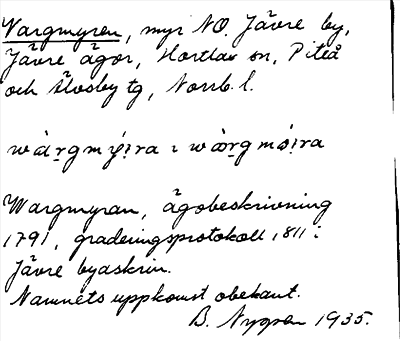 Vargmyren, myr NO. Jävre by,
Jävre ägor, Hortlax sn, Piteå
och Älvsby tg, Norrb. l.
Wargmyran, ägobeskrivning
1791, graderingsprotokoll 1811 i
Jävre byaskrin.
Namnets uppkomst obekant.
B. Nygren 1935.